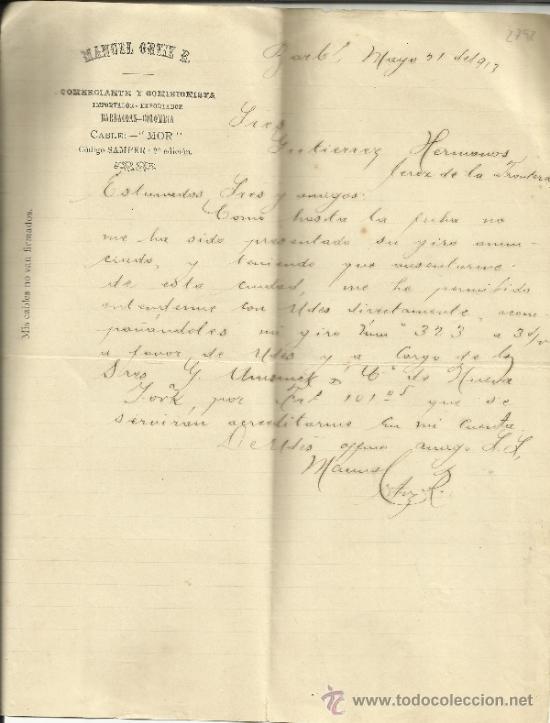 2792
MANUEL ORTIZ R.
COMERCIANTE Y COMISIONISTA
IMPORTADOR - EXPORTADOR
BARBACOAS - COLOMBIA
CABLE: - "MOR"
Código SAMPER - 2ª edición.
Mis cables no van firmados.
Barbs, Mayo 31 de 1913
Sres
Gutierrez Hermanos
Jerez de la Frontera
Estimados Sres y amigos:
Como hasta la fecha no
me ha sido presentado su giro anun-
ciado, y teniendo que ausentarme
de esta ciudad, me he permitido
entenderme con Udes directamente, acom-
pañándoles mi giro Num° 323 a 3 d/v
a favor de Udes y a cargo de los
Sres G. Amsinck & Cª de Nueva
York, por 101.05 que se
serviran acreditarme en mi cuenta
De Udes affmo amigo S.S,
Manuel Ortiz R.
www.todocoleccion.net